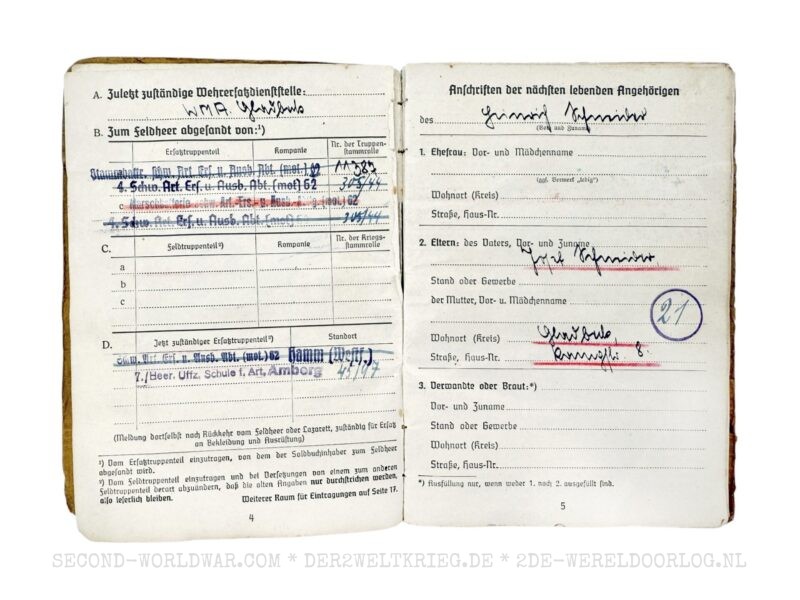 A. Zuletzt zuständige Wehrersatzdienststelle:
W.M.A. Gladbeck
B. Zum Feldheer abgesandt von:¹)
Ersatztruppenteil Kompanie Nr. der Truppen-
stammrolle
Stammbattr. schw. Art. Ers. u. Ausb. Abt. (mot.) 62
4. Schw. Art. Ers. u. Ausb. Abt. (mot) 62 305/44
c
4. Schw. Art. Ers. u. Ausb. Abt. (mot) 62 305/44
C. Feldtruppenteil²) Kompanie Nr. der Kriegs-
stammrolle
a
b
c
D. Jetzt zuständiger Ersatztruppenteil²) Standort
Schw. Art. Ers. u. Ausb. Abt. (mot.) 62 Hamm (Westf.)
7./Heer. Uffz. Schule f. Art. Amberg
(Meldung dortselbst nach Rückkehr vom Feldheer oder Lazarett, zuständig für Ersatz
an Bekleidung und Ausrüstung)
¹) Vom Ersatztruppenteil einzutragen, von dem der Soldbuchinhaber zum Feldheer
abgesandt wird.
²) Vom Feldtruppenteil einzutragen und bei Versetzungen von einem zum anderen
Feldtruppenteil derart abzuändern, daß die alten Angaben nur durchstrichen werden,
also leserlich bleiben. Weiterer Raum für Eintragungen auf Seite 17.
4
Anschriften der nächsten lebenden Angehörigen
des Heinrich Schneider
(Vor- und Zuname)
1. Ehefrau: Vor- und Mädchenname
(ggf. Vermerk „ledig“)
Wohnort (Kreis)
Straße, Haus-Nr.
2. Eltern: des Vaters, Vor- und Zuname
Josef Schneider
Stand oder Gewerbe
der Mutter, Vor- u. Mädchenname
21
Wohnort (Kreis) Gladbeck
Straße, Haus-Nr. 8.
3. Verwandte oder Braut:*)
Vor- und Zuname
Stand oder Gewerbe
Wohnort (Kreis)
Straße, Haus-Nr.
*) Ausfüllung nur, wenn weder 1. noch 2. ausgefüllt sind.
5
SECOND-WORLDWAR.COM * DER2WELTKRIEG.DE * 2DE-WERELDOORLOG.NL